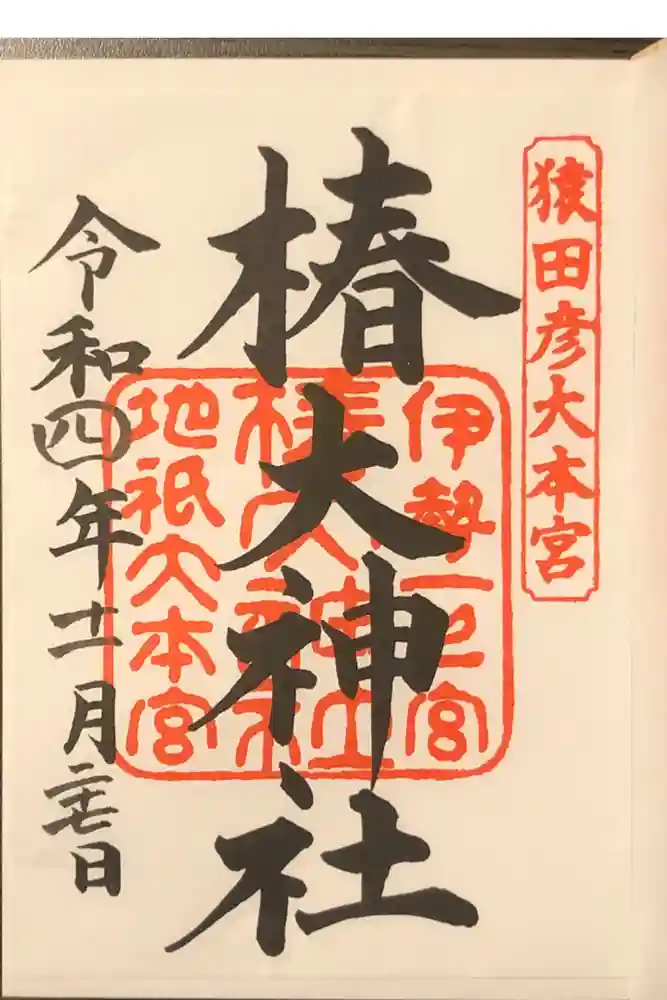 猿田彦大本宮
椿大神社
伊勢一之宮
椿大神社
地祇大本宮
令和四年十一月二十七日